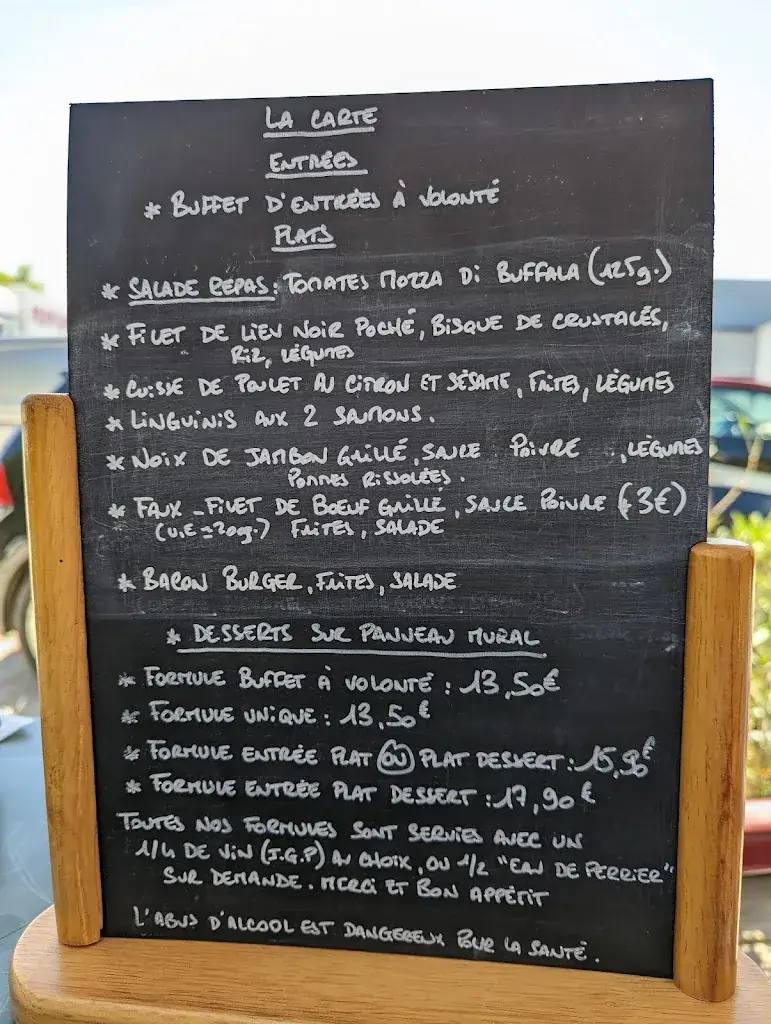 LA CARTE
ENTRÉES
* BUFFET D'ENTRÉES À VOLONTÉ
PLATS
* SALADE REPAS : TOMATES MOZZA DI BUFFALA (125g.)
* FILET DE LIEU NOIR POCHÉ, BISQUE DE CRUSTACÉS,
RIZ, LÉGUMES
* CUISSE DE POULET AU CITRON ET SÉSAME, FRITES, LÉGUMES
* LINGUINIS AUX 2 SAUMONS.
* NOIX DE JAMBON GRILLÉ, SAUCE POIVRE , LÉGUMES
POMMES RISSOLÉES.
* FAUX-FILET DE BOEUF GRILLÉ, SAUCE POIVRE (+3€)
(U.E = 200g.) FRITES, SALADE
* BACON BURGER, FRITES, SALADE
* DESSERTS SUR PANNEAU MURAL
* FORMULE BUFFET À VOLONTÉ : 13,50€
* FORMULE UNIQUE : 13,50€
* FORMULE ENTRÉE PLAT OU PLAT DESSERT : 15,90€
* FORMULE ENTRÉE PLAT DESSERT : 17,90€
TOUTES NOS FORMULES SONT SERVIES AVEC UN
1/4 DE VIN (I.G.P) AU CHOIX, OU 1/2 "EAU DE PERRIER"
SUR DEMANDE. MERCI ET BON APPÉTIT
L'ABUS D'ALCOOL EST DANGEREUX POUR LA SANTÉ.